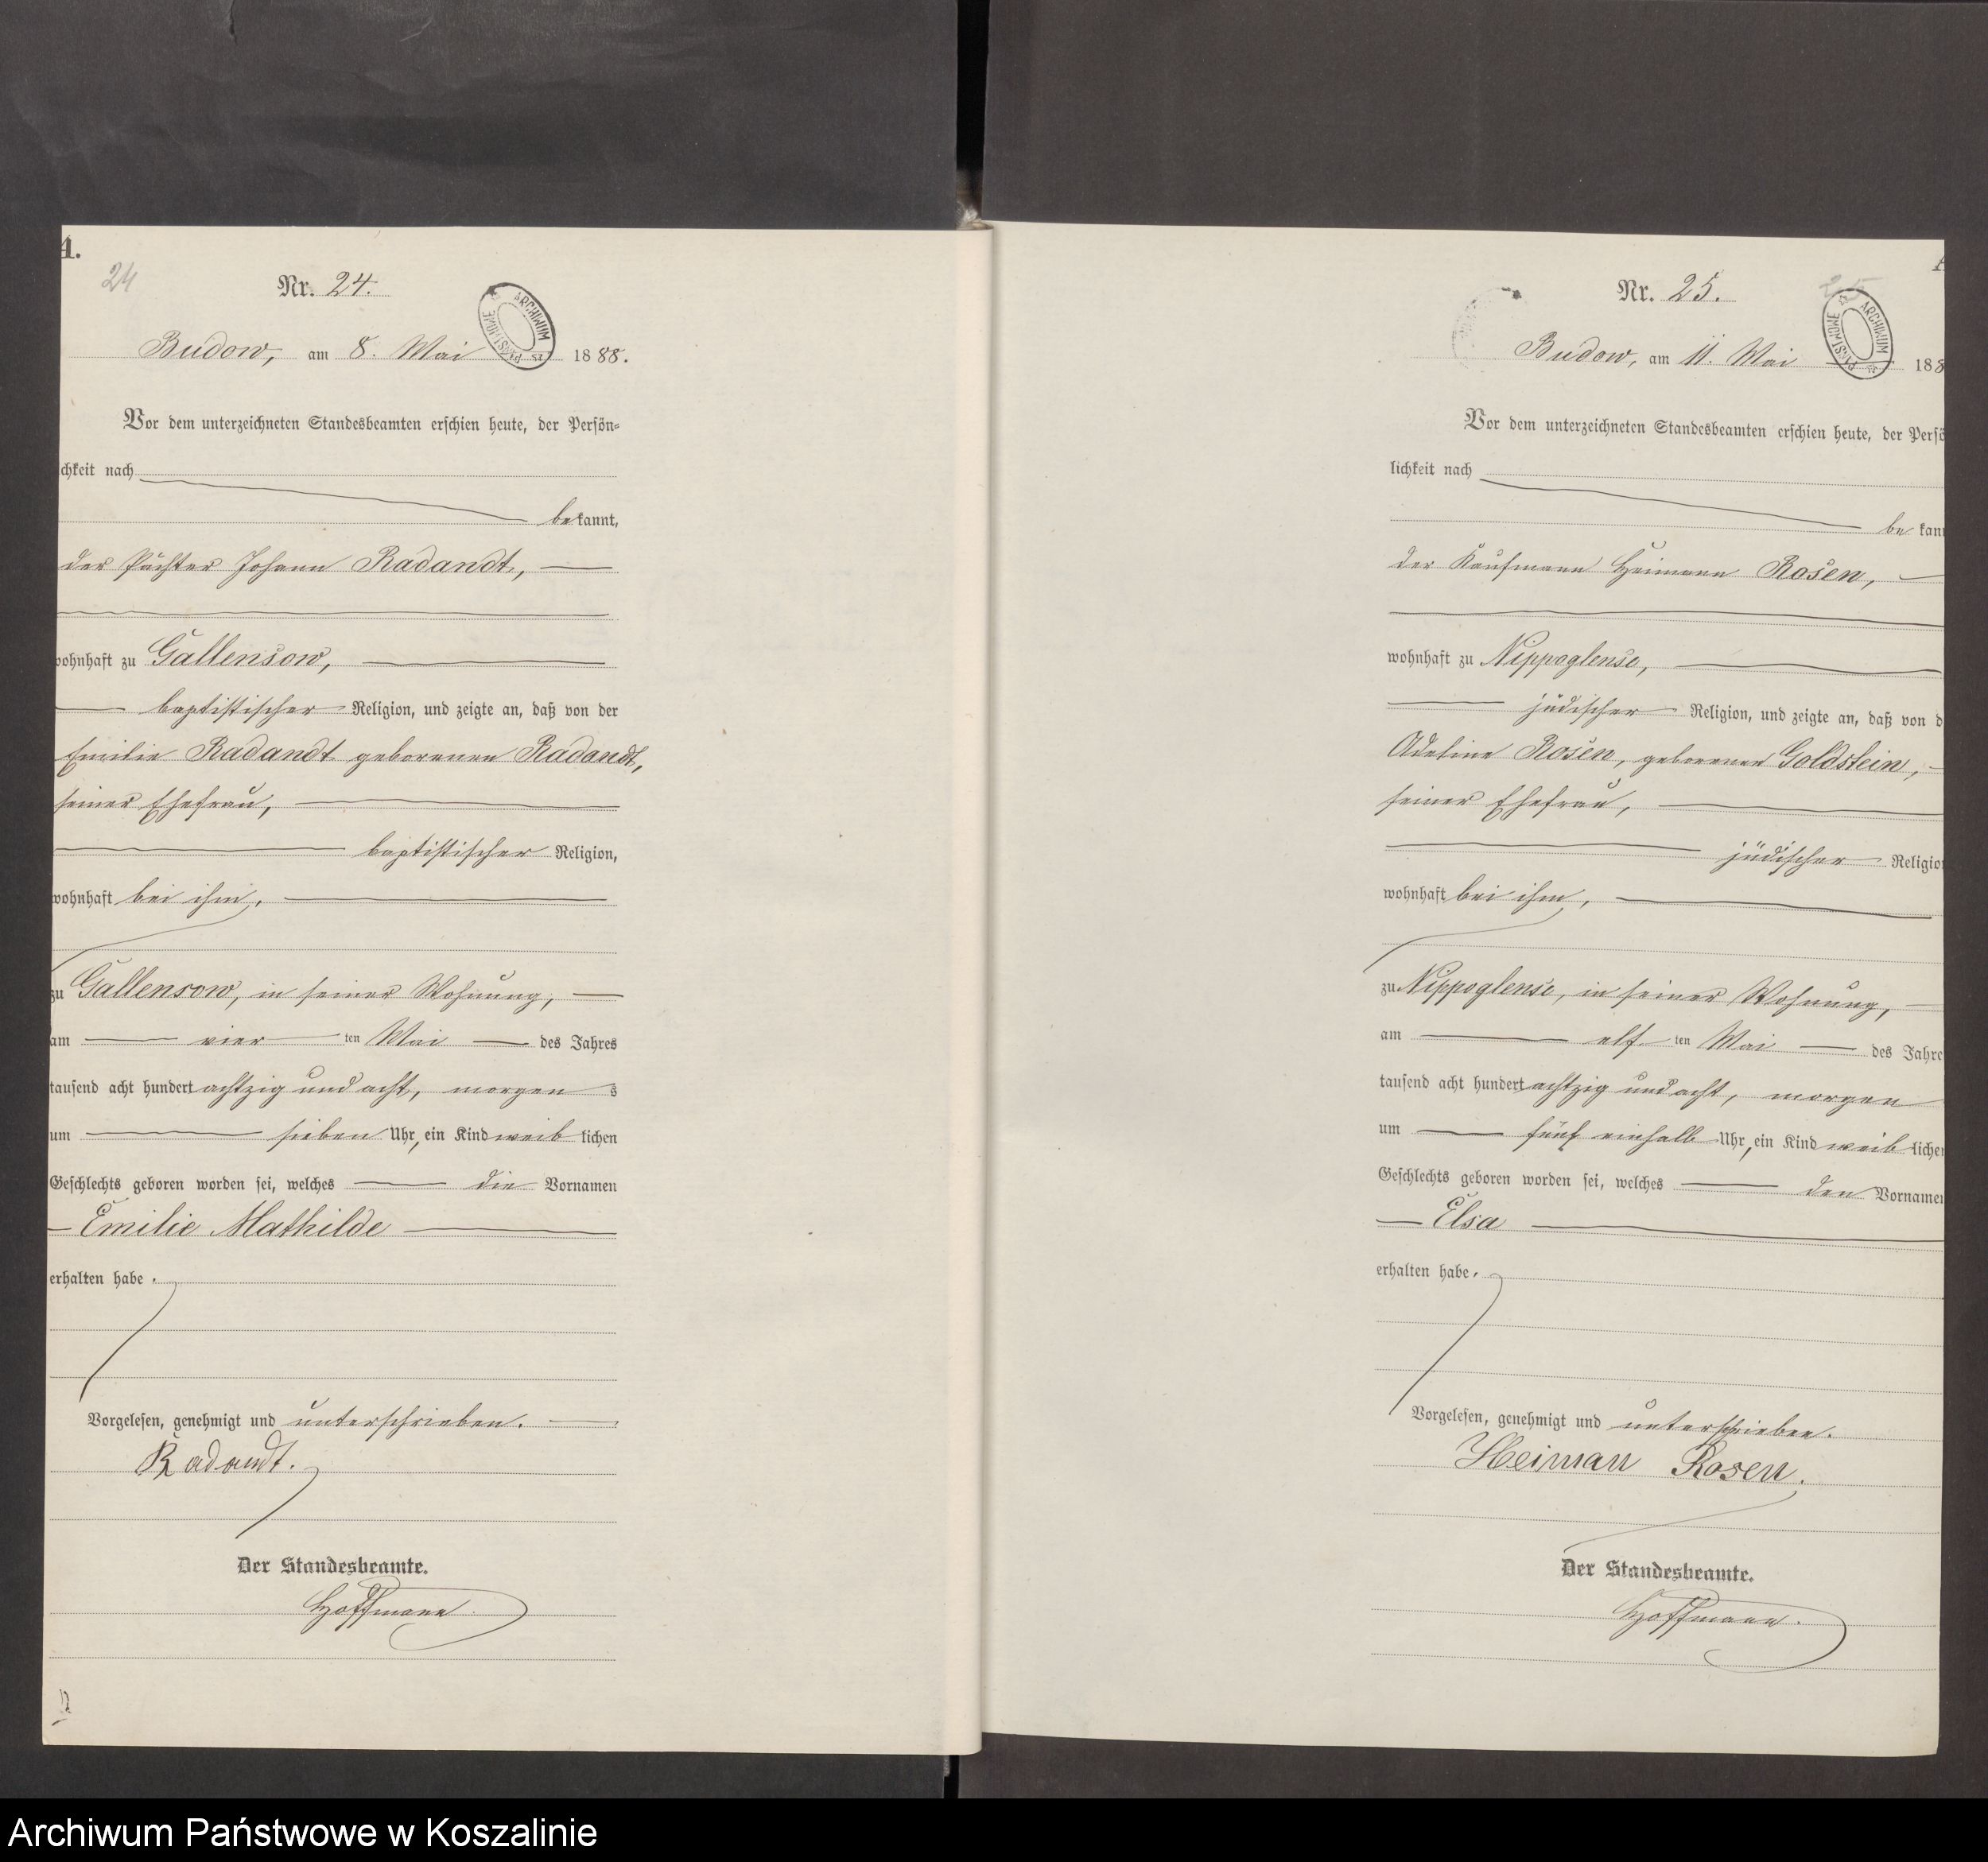 A.
24
Nr. 24.
ARCHIWUM PAŃSTWOWE
Budow, am 8. Mai 1888.
Vor dem unterzeichneten Standesbeamten erschien heute, der Persön-
chkeit nach
bekannt,
der Pächter Johann Radandt,
wohnhaft zu Gallensow,
baptistischer Religion, und zeigte an, daß von der
Emilie Radandt geborenen Radandt,
seiner Ehefrau,
baptistischer Religion,
wohnhaft bei ihm,
zu Gallensow, in seiner Wohnung,
am vier ten Mai des Jahres
tausend acht hundert achtzig und acht, morgen s
um sieben Uhr, ein Kind weib lichen
Geschlechts geboren worden sei, welches die Vornamen
Emilie Mathilde
erhalten habe.
Vorgelesen, genehmigt und unterschrieben.
Radandt.
Der Standesbeamte.
Hoffmann
Nr. 25.
25
ARCHIWUM PAŃSTWOWE
Budow, am 11. Mai 188
Vor dem unterzeichneten Standesbeamten erschien heute, der Persö
lichkeit nach
be kan
der Kaufmann Heimann Rosen,
wohnhaft zu Nippoglense,
jüdischer Religion, und zeigte an, daß von d
Adeline Rosen, geborenen Goldstein,
seiner Ehefrau,
jüdischer Religio
wohnhaft bei ihm,
zu Nippoglense, in seiner Wohnung,
am elf ten Mai des Jahre
tausend acht hundert achtzig und acht, morgen
um fünf einhalb Uhr, ein Kind weib liche
Geschlechts geboren worden sei, welches den Vorname
Elsa
erhalten habe.
Vorgelesen, genehmigt und unterschrieben.
Heiman Rosen.
Der Standesbeamte.
Hoffmann.
Archiwum Państwowe w Koszalinie